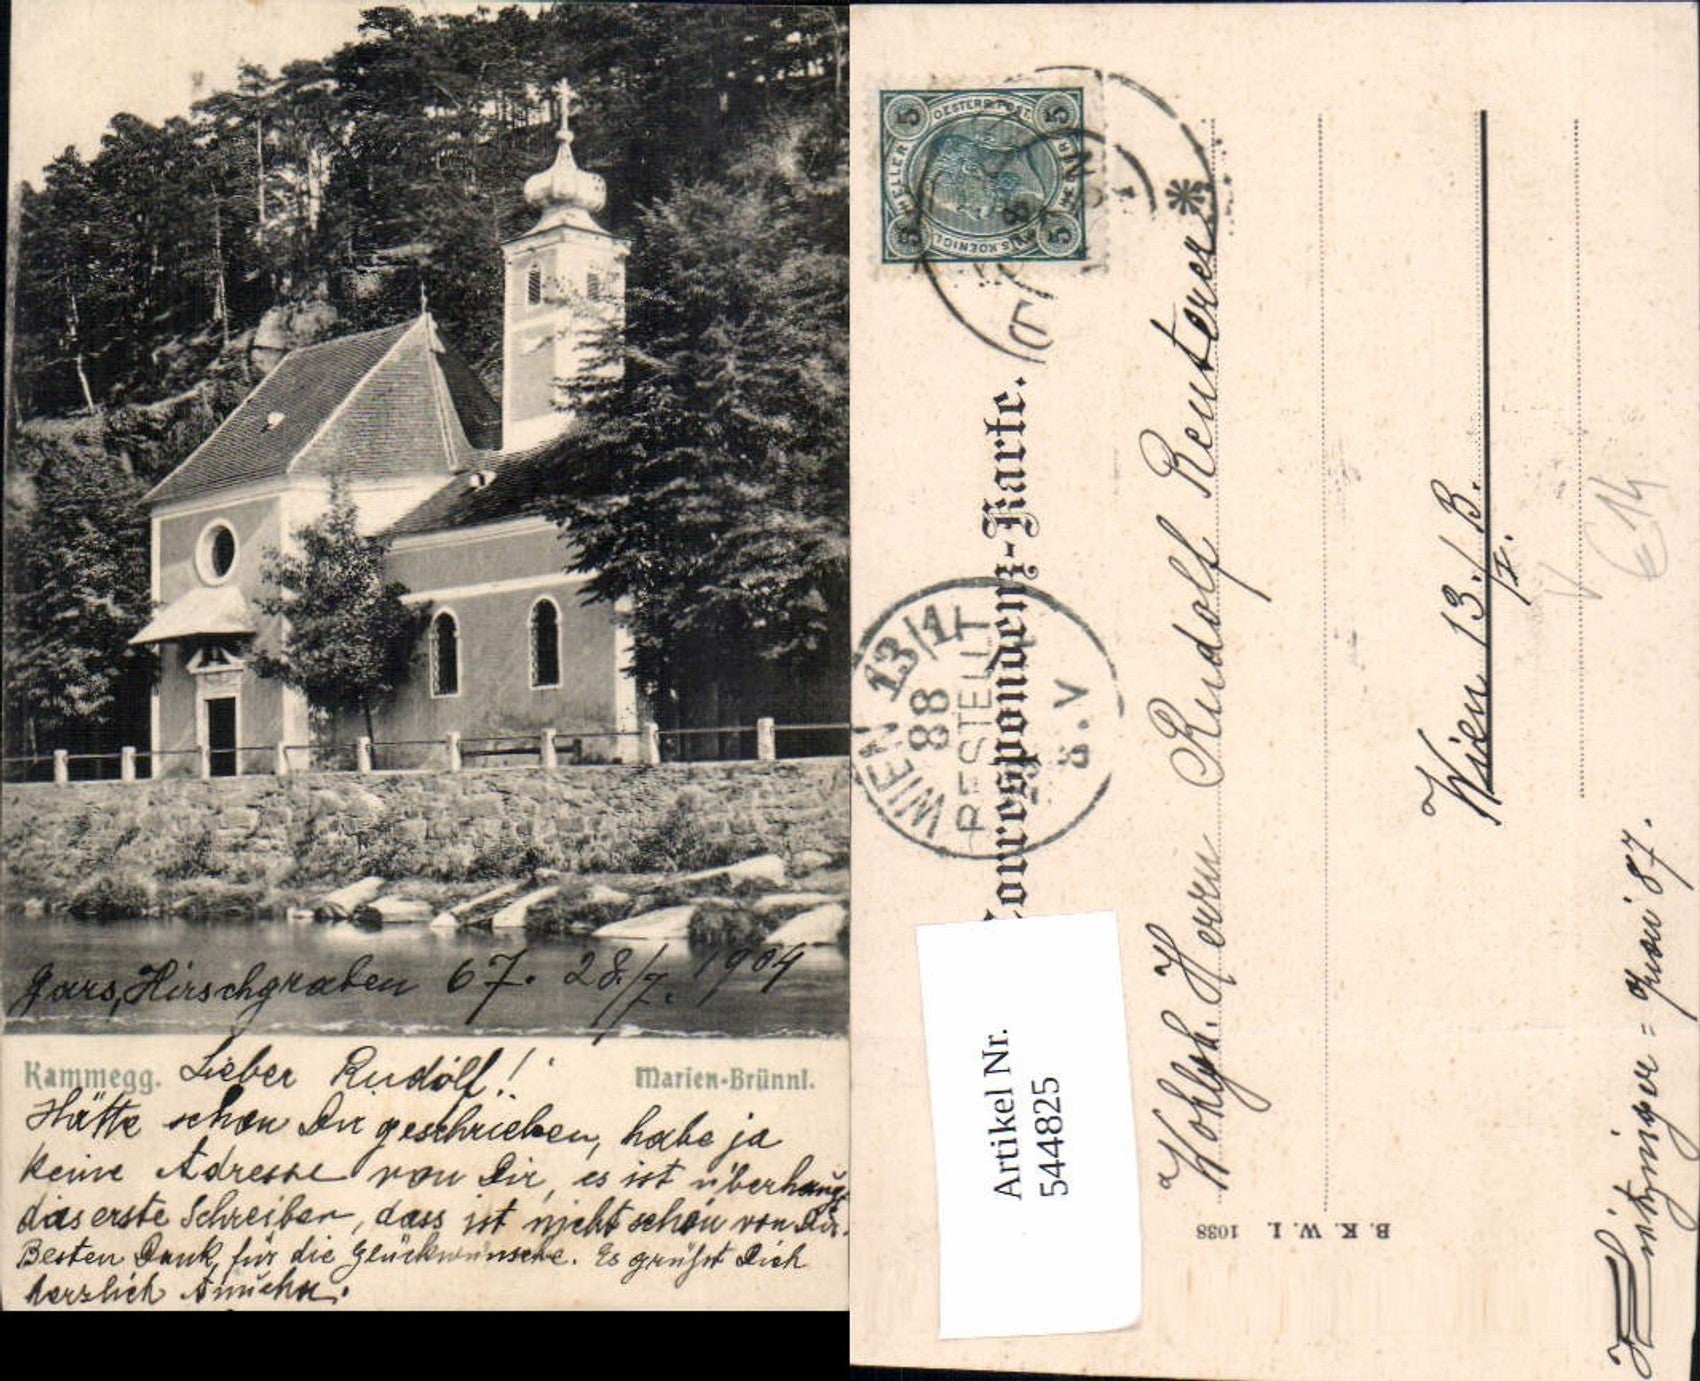 Gars, Hirschgraben 67. 28./7. 1904
Kammegg. Lieber Rudolf! Marien-Brünnl.
Hätte schon Dir geschrieben, habe ja
keine Adresse von Dir, es ist überhaupt
das erste Schreiben, dass ist nicht schön von Dir.
Besten Dank für die Glückwünsche. Es grüßt Dich
herzlich
5 OESTERR. POST. 5
HELLER
5 5
Correspondenz-Karte.
WIEN 13/1
88
BESTELLT
8.V
Wohlgb. Herrn Rudolf Reuterer
Wien 13./B.
I.
€ 14
Hietzinger =
87.
B. K. W. I. 1038
Artikel Nr.
544825